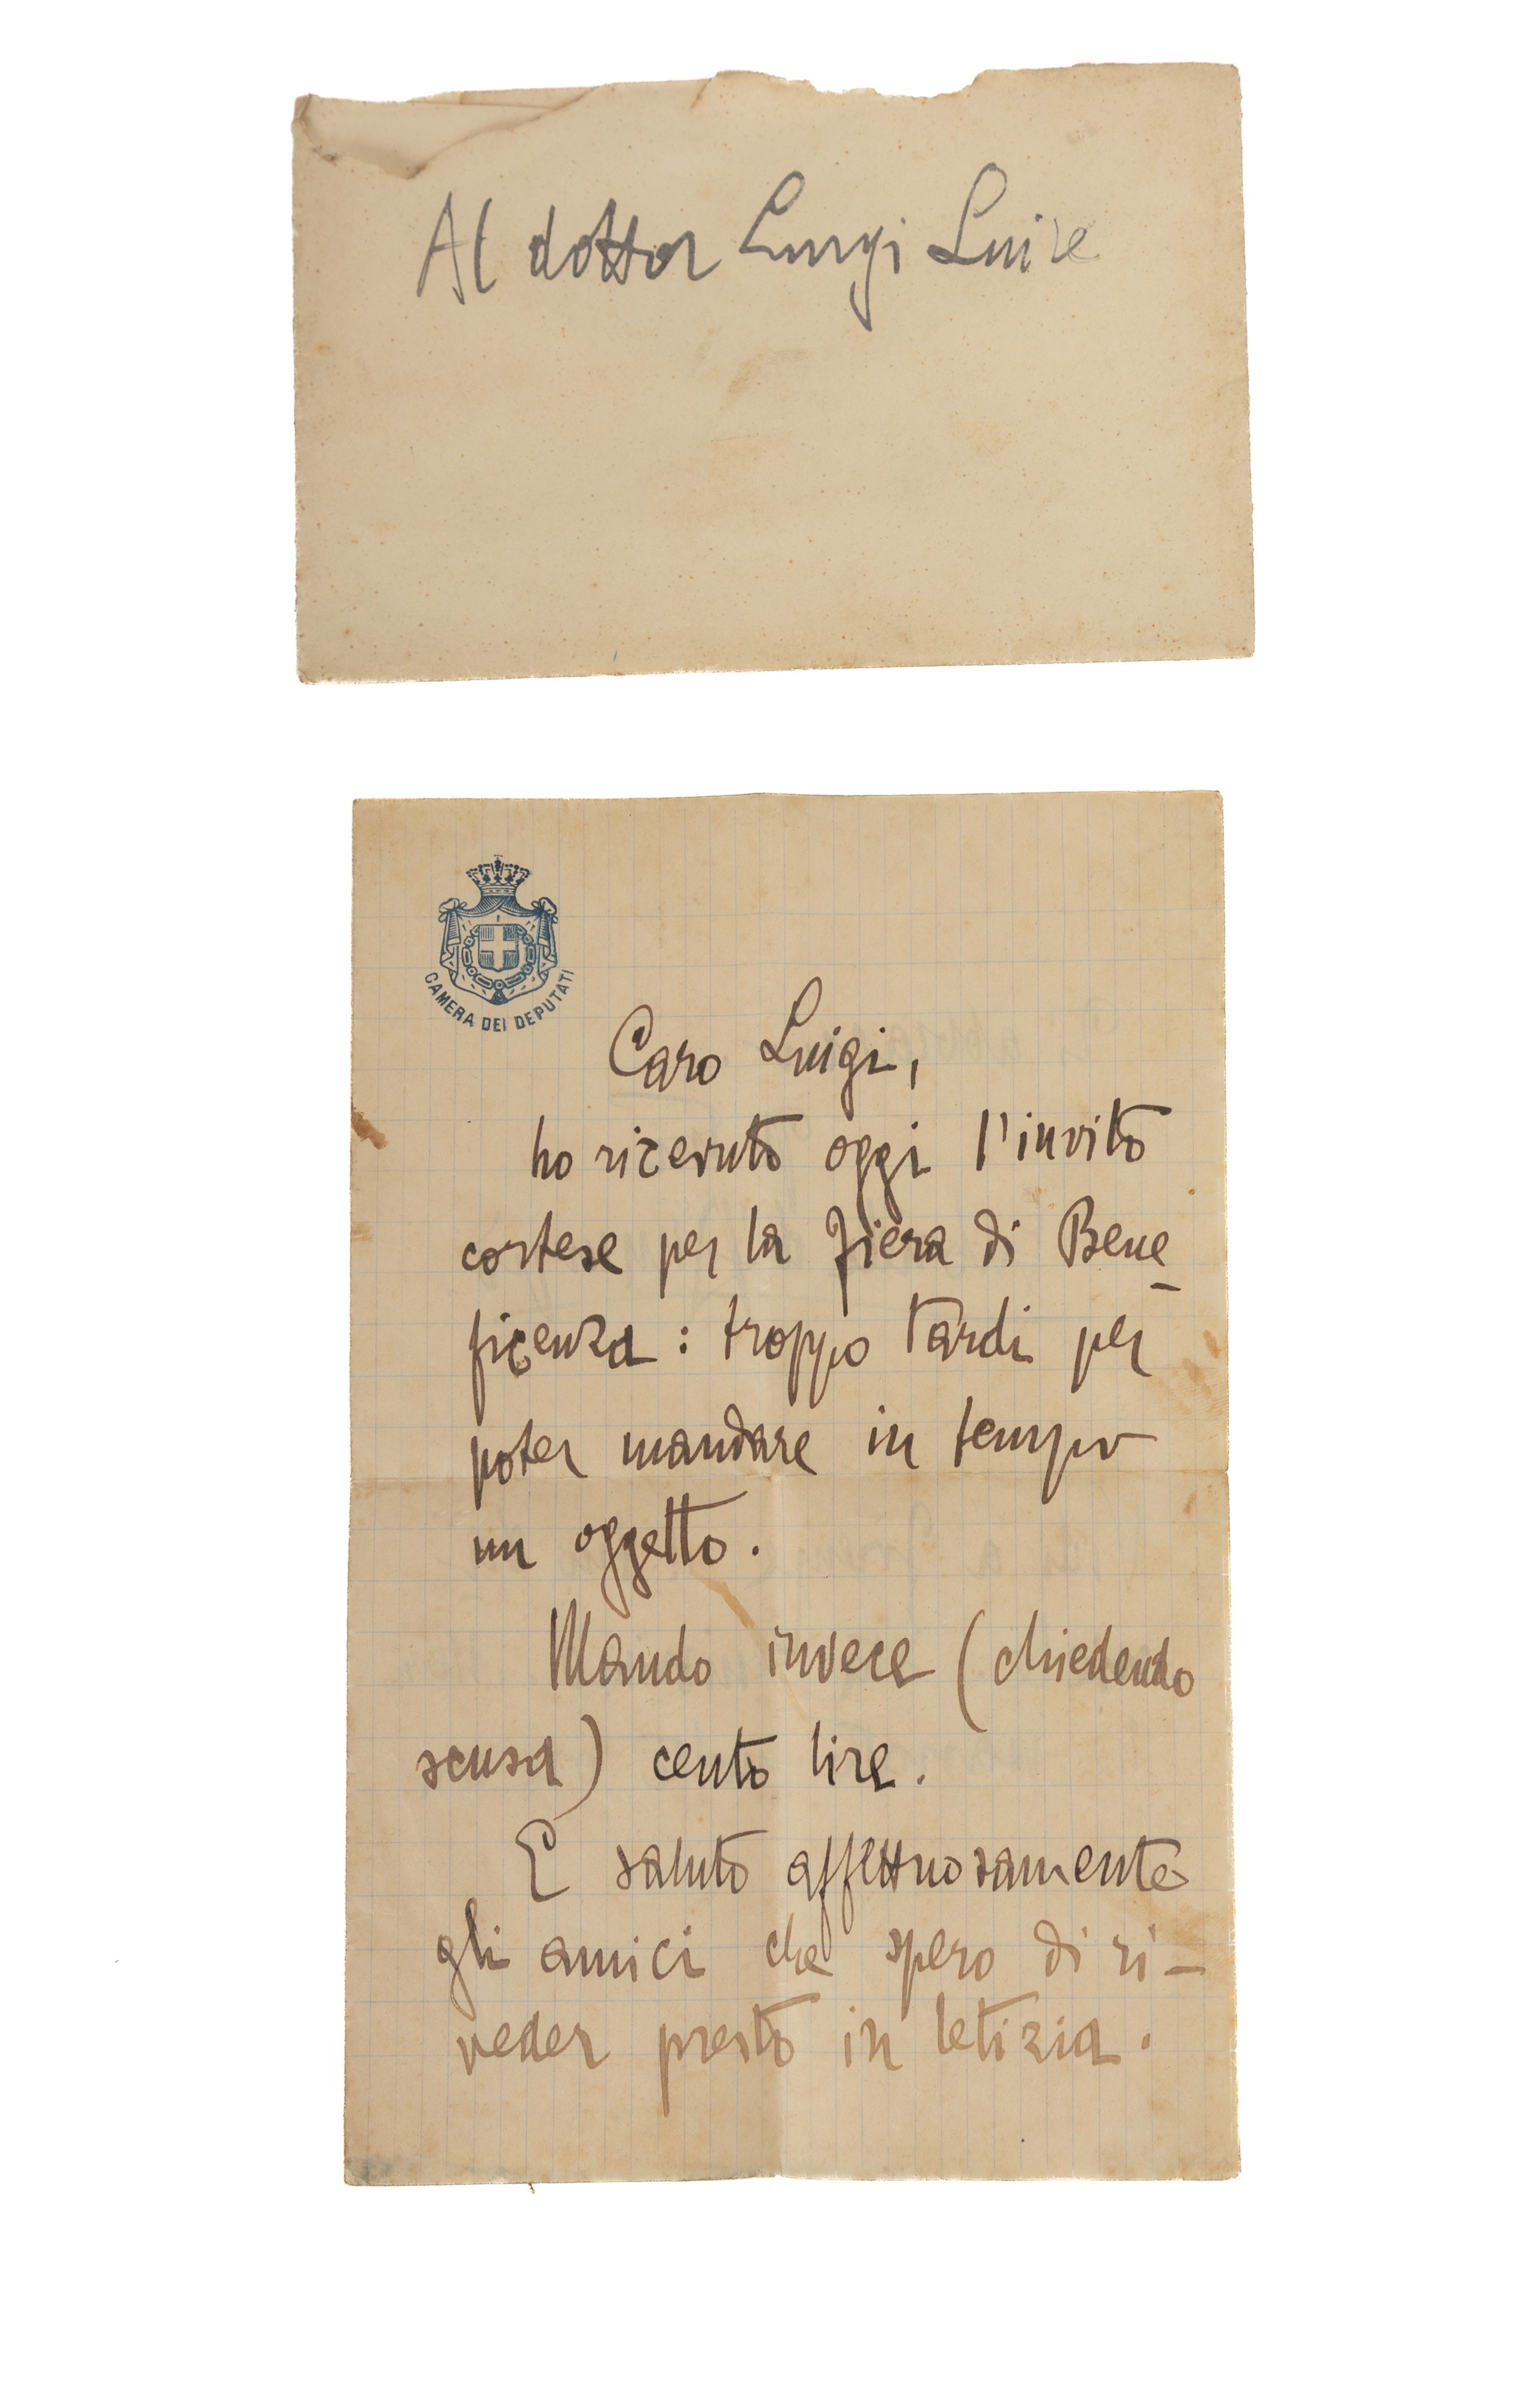 Al dottor Luigi Luise
CAMERA DEI DEPUTATI
Caro Luigi,
ho ricevuto oggi l'invito
cortese per la fiera di Bene-
ficenza: troppo tardi per
poter mandare in tempo
un oggetto.
Mando invece (chiedendo
scusa) cento lire.
E saluto affettuosamente
gli amici che spero di ri-
veder presto in letizia.